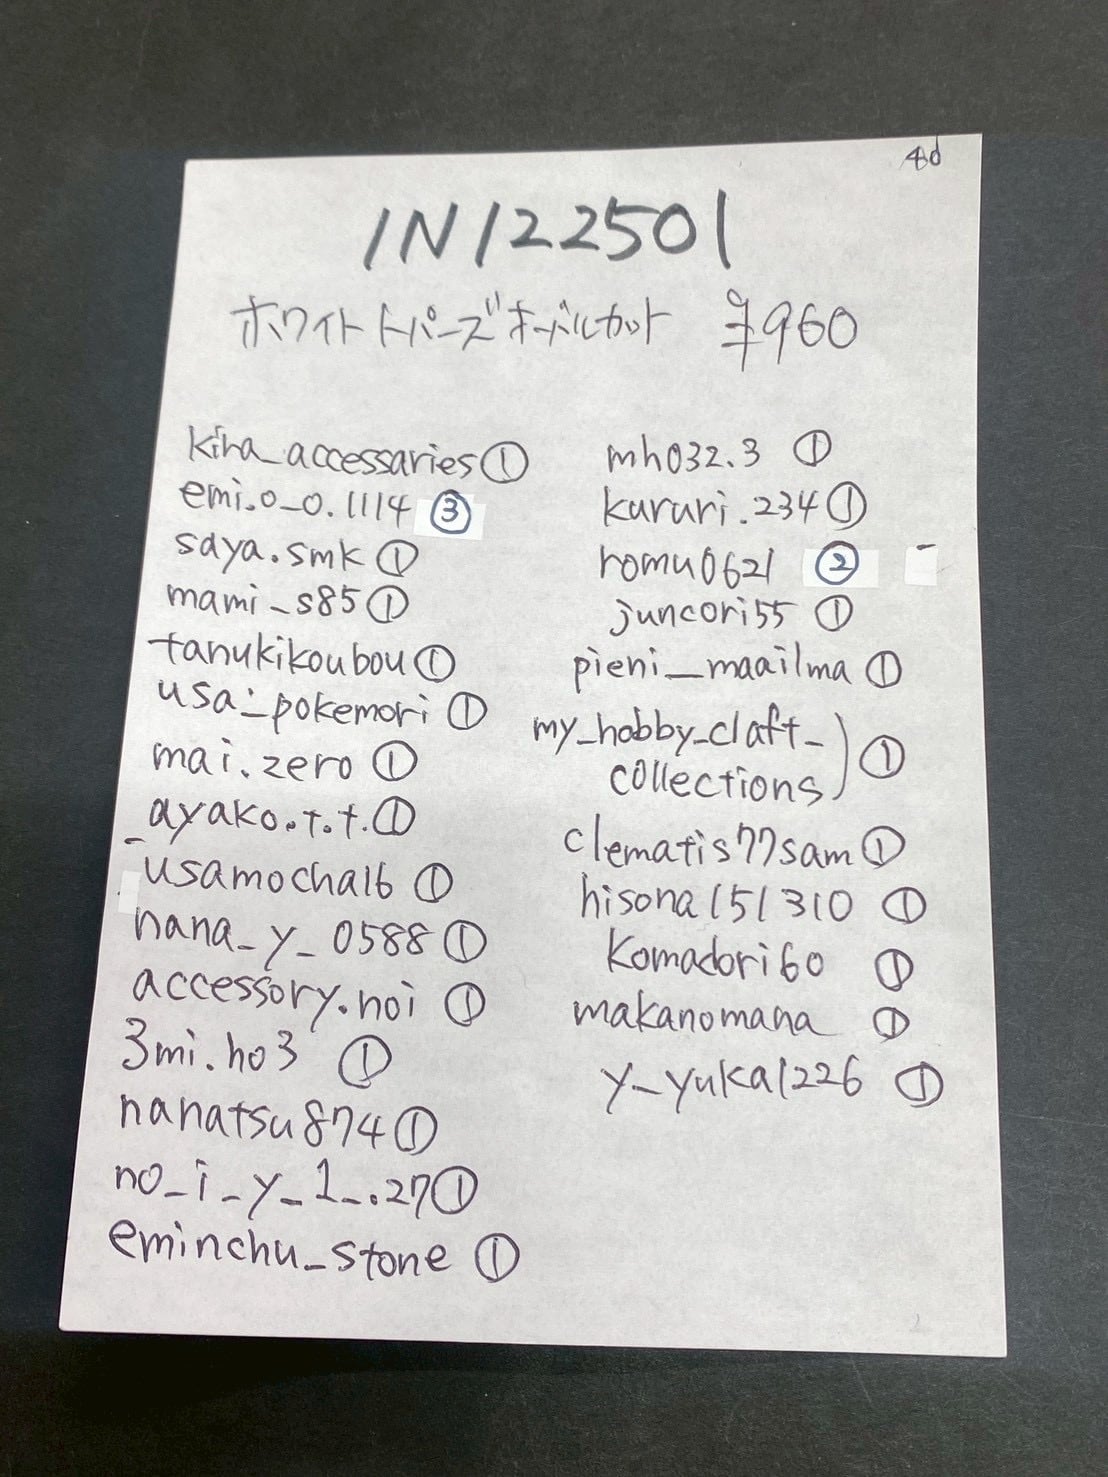 4d
IN122501
ホワイトトパーズオーバルカット ¥960
kira_accessaries①
emi.o_o.1114 ③
saya.smk ①
mami_s85①
tanukikoubou①
usa_pokemori ①
mai.zero ①
_ayako.t.t.①
usamocha16 ①
nana_y_0588①
accessory.noi ①
3mi.ho3 ①
nanatsu874①
no_i_y_1_.27①
eminchu_stone ①
mh032.3 ①
kururi.234①
romu0621 ②
juncori55 ①
pieni_maailma ①
my_hobby_claft_
collections) ①
clematis77sam①
hisona151310 ①
komadori60 ①
makanomana ①
y_yuka1226 ①